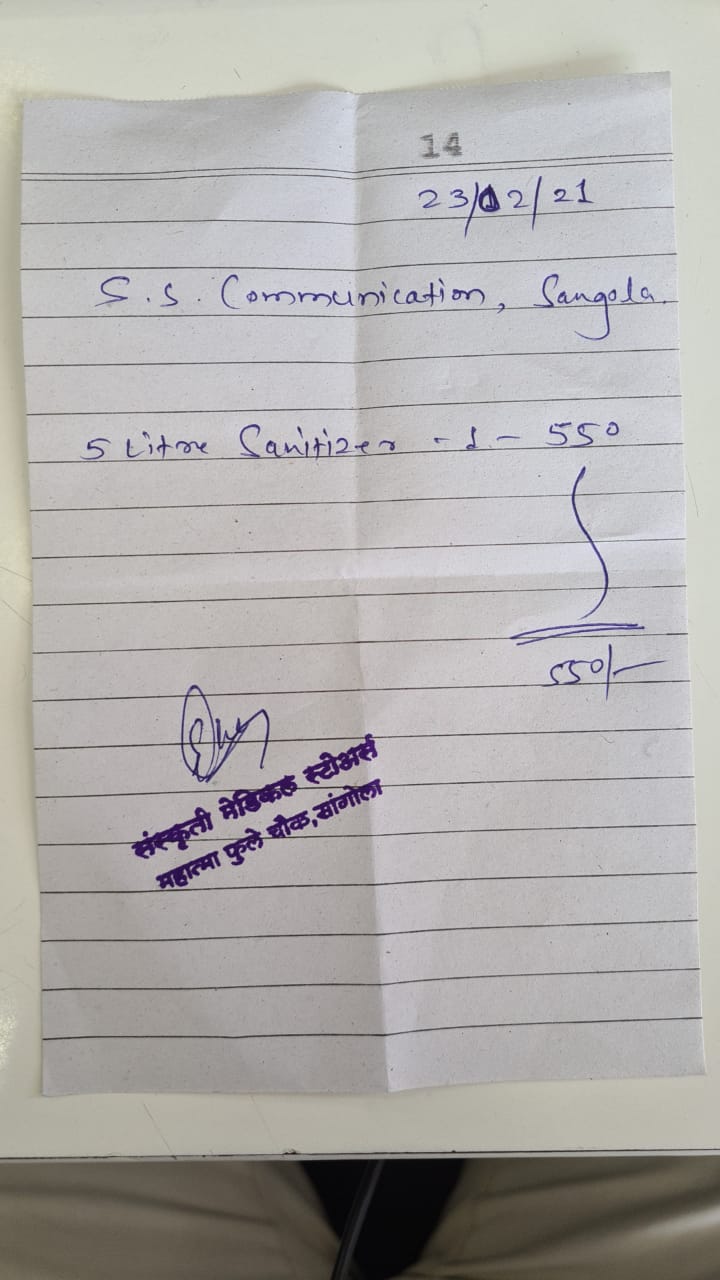 14
23/02/21
S.S. Communication, Sangola.
5 Litre Sanitizer - 1 - 550
550/-
संस्कृती मेडिकल स्टोअर्स
महात्मा फुले चौक, सांगोला